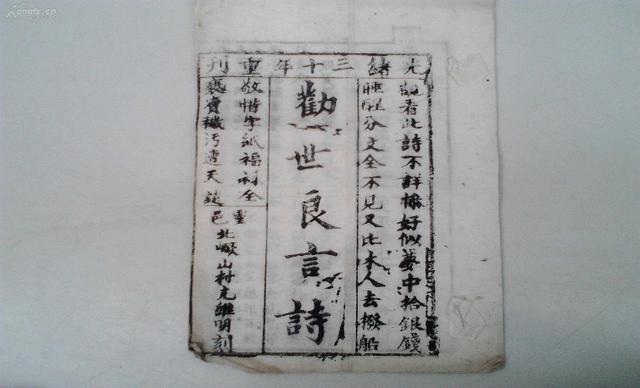 光緒三十年重刊
觀看此詩不詳條好似夢中拾銀錢
睡醒分文全不見又比木人去撥船
勸世良言詩
敬惜字紙福祿全
穢污遭天誅
靈邑北山村維明刻